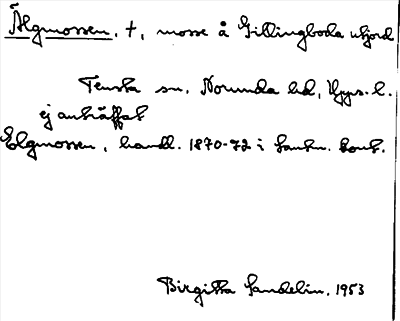 Älgmossen, †, mosse å Gillingboda utjord
Tensta sn, Norunda hd, Upps. l.
ej anträffat
Elgmossen, handl. 1870-72 i Lantm. kont.
Birgitta Sandelin. 1953